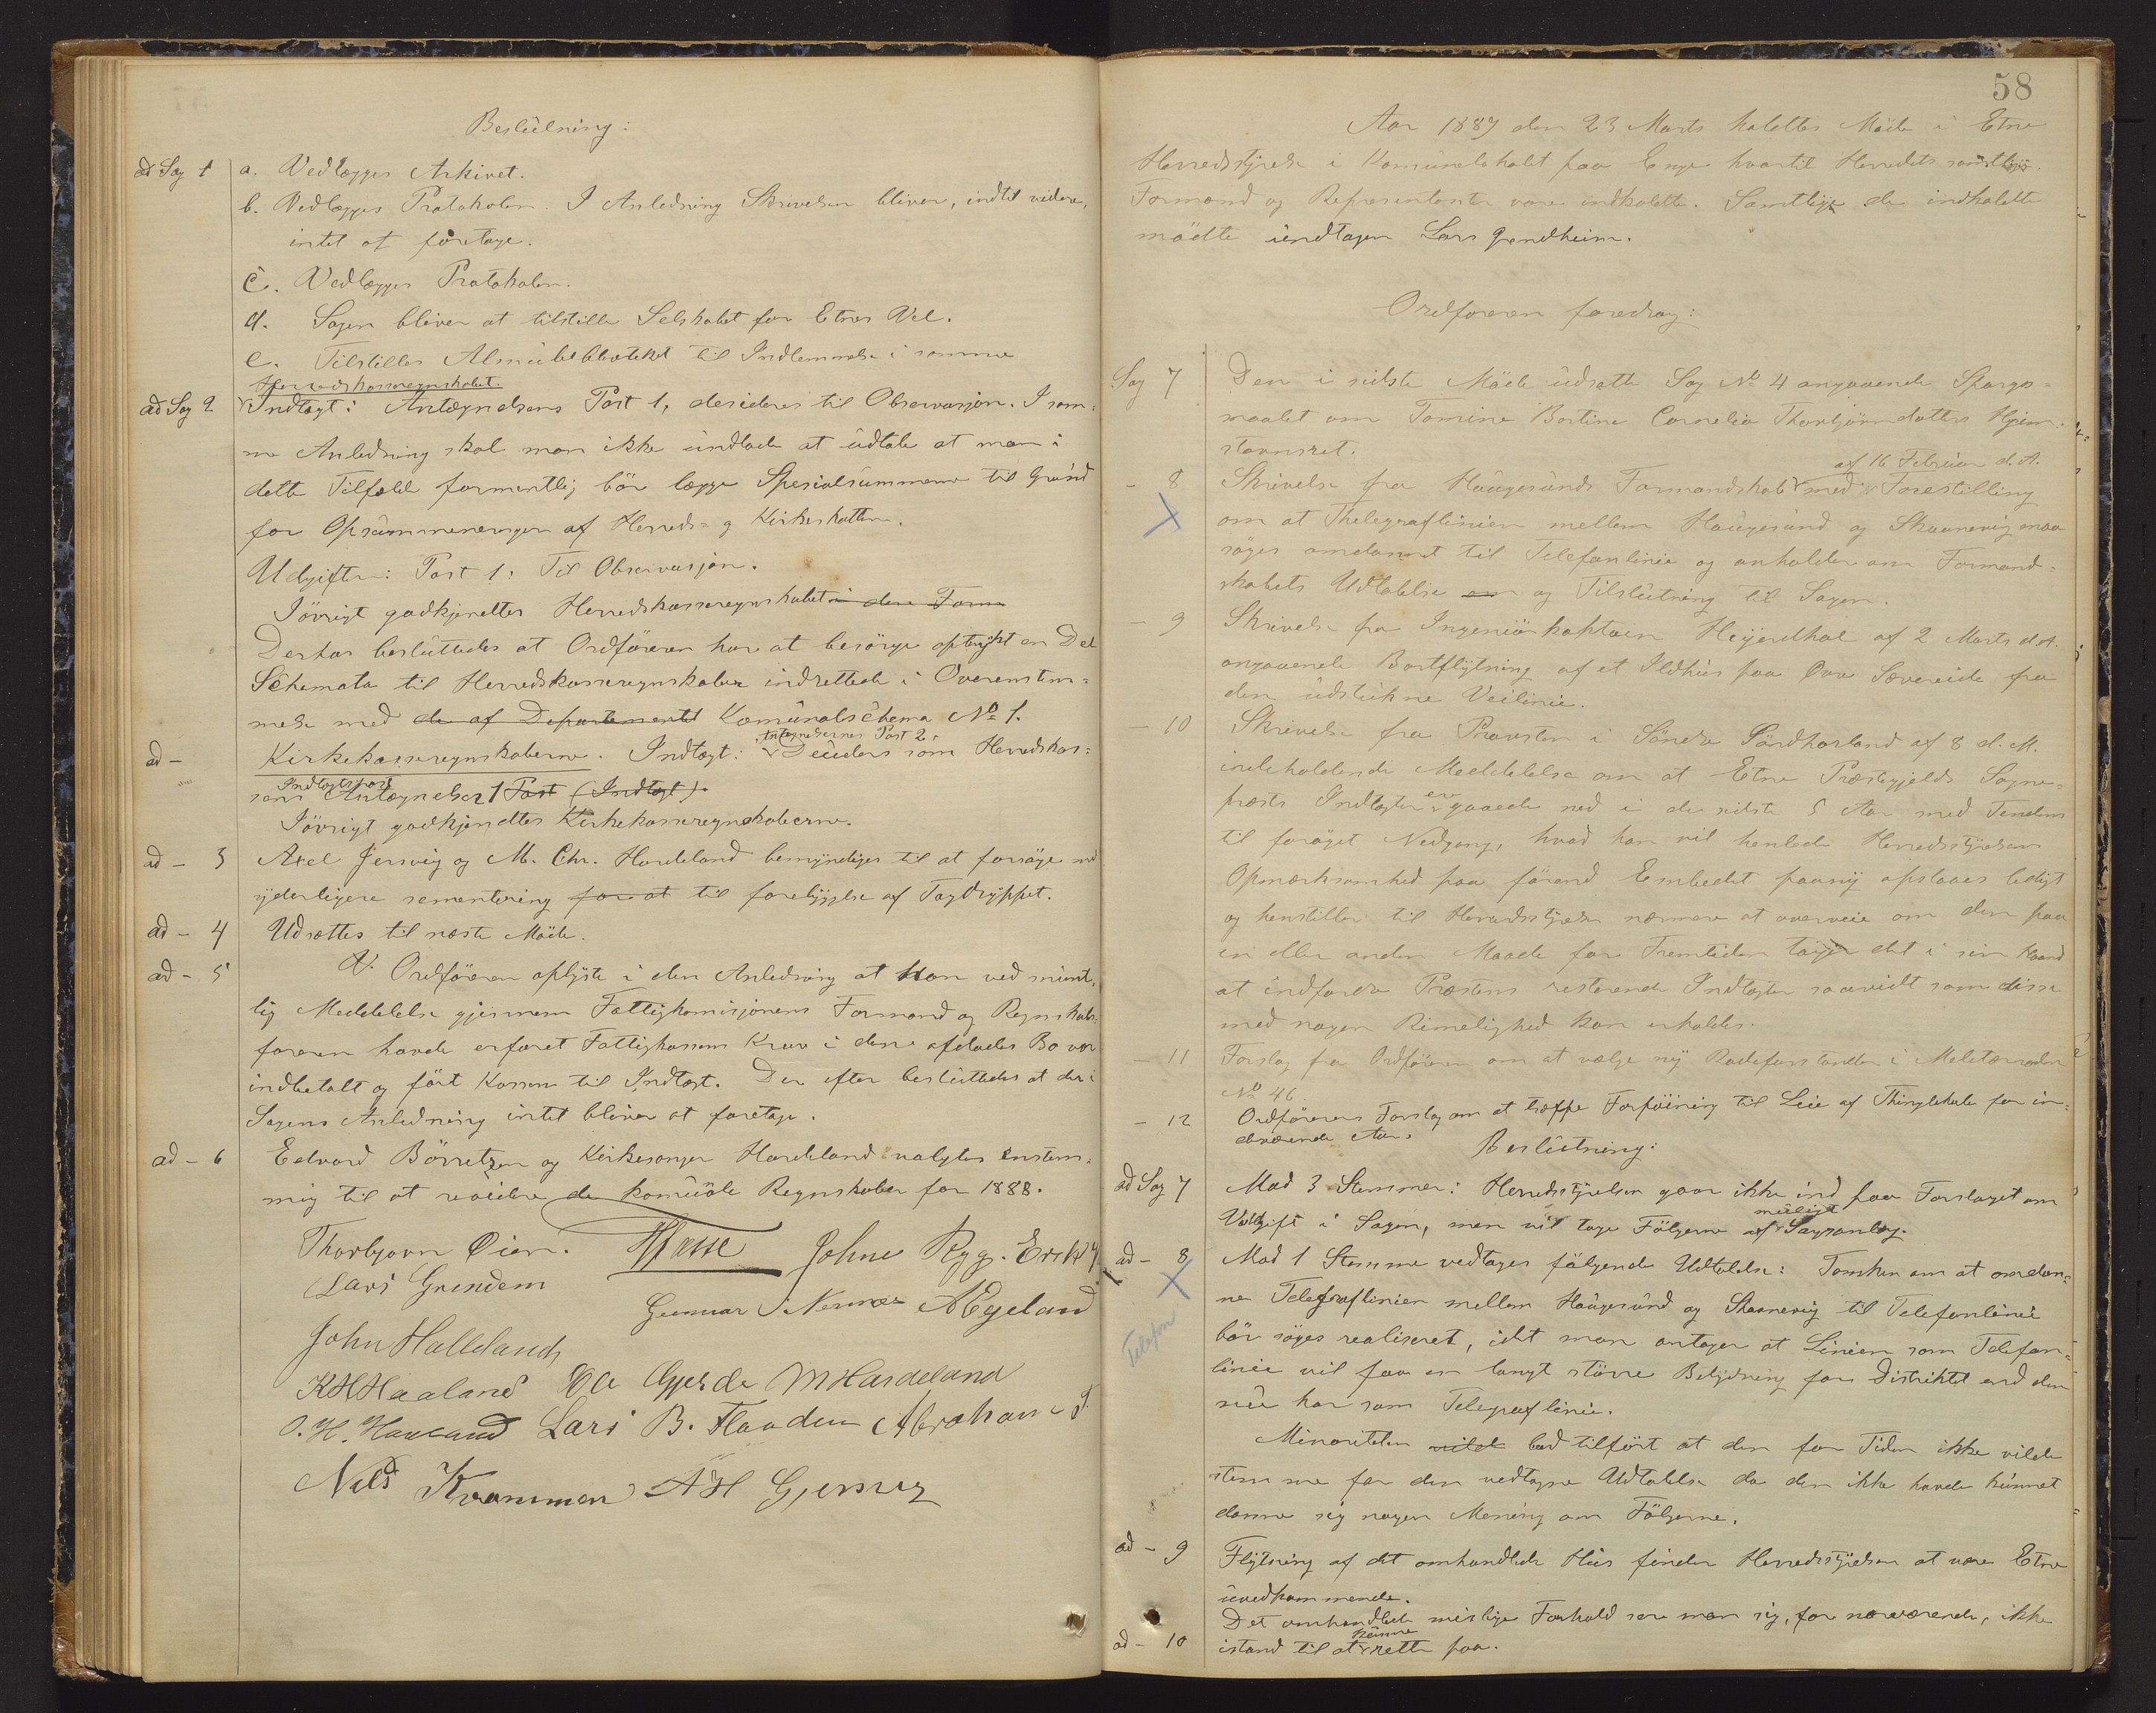 Beslutning:
ad Sag 1 a. Vedlægges Arkivet.
b. Vedlægges Protokolen. I Anledning Skrivelsen bliver, indtil videre,
intet at foretage.
c. Vedlægges Protokolen.
d. Sagen bliver at tilstille Selskabet for Etnes Vel.
e. Tilstilles Almubiblioteket til Indlemmelse i samme
Herredskasseregnskabet.
ad Sag 2 Indtægt: Antegnelsens Post 1, desideres til Observasjon. I sam-
me Anledning skal man ikke undlade at udtale at man i
dette Tilfælde formentlig bör lægge Spesialsummerne til Grund
for Opsummeringen af Herreds- og Kirkeskatten.
Udgifter: Post 1: Til Observasjon.
Iövrigt godkjendtes Herredskasseregnskabet i den Form
Derhos besluttedes at Ordföreren har at besörge optrykt en Del
Schemata til Herredskasseregnskaber indrettede i Overenstem-
melse med de af Departementet Komunalschema No 1.
Antegnelsernes Post 2.
ad - Kirkekasseregnskaberne. Indtægt: Desideres som Herredskas-
Indtægtspost
sens Antægnelser 1 Post (Indtægt).
Iövrigt godkjendtes Kirkekasseregnskaberne.
ad - 3 Axel Jersvig og M. Chr. Hardeland bemyndiges til at forsöge med
yderligere sementering for at til forebyggelse af Tagdryppet.
ad - 4 Udsættes til næste Möde.
ad - 5 V. Ordföreren oplyste i den Anledning at han ved mundt-
lig Meddelelse gjennem Fattigkomisjonens Formand og Regnskabs-
föreren havde erfaret Fattigkassens Krav i dennes afdödes Bo var
indbetalt og fört Kassen til Indtægt. Der efter besluttedes at der i
Sagens Anledning intet bliver at foretage.
ad - 6 Edvard Börretzen og Kirkesanger Hardeland valgtes enstem-
mig til at revidere de komunale Regnskaber for 1888.
Thorbjorn Öien. Johne Rygg. Erik
Lars Grindem Gunnar J Nernæs A Egeland
John Halleland
K H Haaland Ole Gjerde M Hardeland
O. H. Haaland Lars B. Flaaden Abraham
Nils Krommen A H Gjersvig
58
Aar 1889 den 23 Marts holdtes Möde i Etne
Herredsstyrelse i Komunelokalet paa Enge hvortil Herredets samtlige
Formænd og Repræsentanter vare indkaldte. Samtlige de indkaldte
mödte undtagen Lars Grindheim.
Ordföreren foredrog:
Sag 7 Den i sidste Möde udsatte Sag No 4 angaaende Spørgs-
maalet om Tomine Bertine Cornelia Thorbjörnsdatters Hjem-
stavnsret.
af 16 Februar d. A.
- 8 Skrivelse fra Haugesunds Formandskab med Forestilling
om at Thelegraflinien mellem Haugesund og Skaanevig maa
söges omdannet til Telefonlinie og anholder om Formand-
skabets Udtalelse om og Tilslutning til Sagen.
- 9 Skrivelse fra Ingeniörkaptein Heyerdhal af 2 Marts d. A.
angaaende Bortflytning af et Ildhus paa Övre Sævereide fra
den udstukne Veilinie.
- 10 Skrivelse fra Provsten i Söndre Söndhorland af 8 d. M.
indeholdende Meddelelse om at Etne Præstegjelds Sogne-
præsts Indtægter ere gaaede ned i de sidste 5 Aar med Tendens
til foröget Nedgang, hvad han vil henlede Herredsstyrelsens
Opmærksomhed paa förend Embedet paany opslaaes ledigt
og henstiller til Herredsstyrelsen nærmere at overveie om den paa
en eller anden Maade for Fremtiden tager det i sin Haand
at indfordre Præstens resterende Indtægter saavidt som disse
med nogen Rimelighed kan erholdes.
- 11 Forslag fra Ordföreren om at vælge ny Rodeforstander i Meletærroden
No 46.
- 12 Ordförerens Forslag om at træffe Forföining til Leie af Thinglokale for in-
deværende Aar.
Beslutning:
ad Sag 7 Mod 3 Stemmer: Herredsstyrelsen gaar ikke ind paa Forslaget om
muligt
Voldgift i Sagen, men vil tage Fölgerne af Saganlæg.
ad - 8 Mod 1 Stemme vedtages fölgende Udtalelse: Tanken om at omdan-
ne Telegraflinien mellem Haugesund og Skaanevig til Telefonlinie
Telefon
bör söges realiseret, idet man antager at Linien som Telefon-
linie vil faa en langt större Betydning for Distriktet end den
nu har som Telegraflinie.
Minoriteten vilde bad tilfört at den for Tiden ikke vilde
stemme for den vedtagne Udtalelse da den ikke havde kunnet
danne sig nogen Mening om Fölgerne.
ad - 9 Flytning af det omhandlede Hus finder Herredsstyrelsen at være Etne
uvedkommende.
ad - 10 Det omhandlede mislige Forhold ser man sig, for nærværende, ikke
kunne
istand til at rette paa.